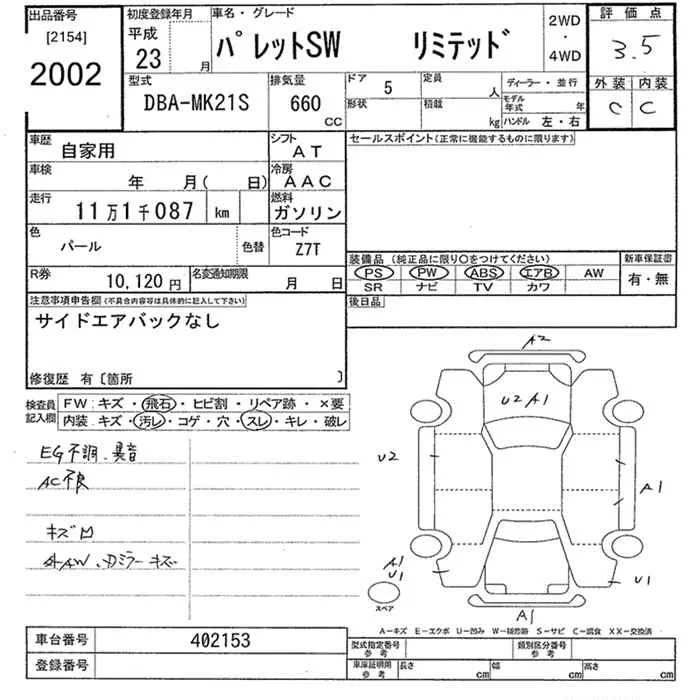 出品番号
[2154]
2002
初度登録年月
平成
23 月
車名・グレード
パレットSW リミテッド
2WD
・
4WD
評価点
3.5
外装 内装
C C
型式
DBA-MK21S
排気量
660
CC
ドア 5
形状
定員 人
積載 kg
ディーラー・並行
モデル年式 年
ハンドル 左・右
車歴 自家用
シフト AT
車検 年 月( 日)
冷房 AAC
走行 11万1千087 km
燃料 ガソリン
色 パール
色替
色コード Z7T
R券 10,120円
名変通知期限 月 日
セールスポイント(正常に機能するものに限ります)
装備品 (純正品に限り○をつけてください)
PS PW ABS エアB AW
SR ナビ TV カワ
新車保証書
有・無
後日品
注意事項申告欄(不具合内容等は具体的に記入して下さい)
サイドエアバックなし
修復歴 有〔箇所 〕
検査員記入欄
FW:キズ・飛石・ヒビ割・リペア跡・×要
内装:キズ・汚レ・コゲ・穴・スレ・キレ・破レ
EG不調、異音
AC不良
キズ凹
外AW、ドミラーキズ
A2
U2 A1
U2
A1
A1
U1
スペア
U1
A1
A-キズ E-エクボ U-凹み W-補修跡 S-サビ C-腐食 XX-交換済
車台番号 402153
登録番号
型式指定番号
参考
類別区分番号
参考
車庫証明用
参考
長さ cm 幅 cm 高さ cm